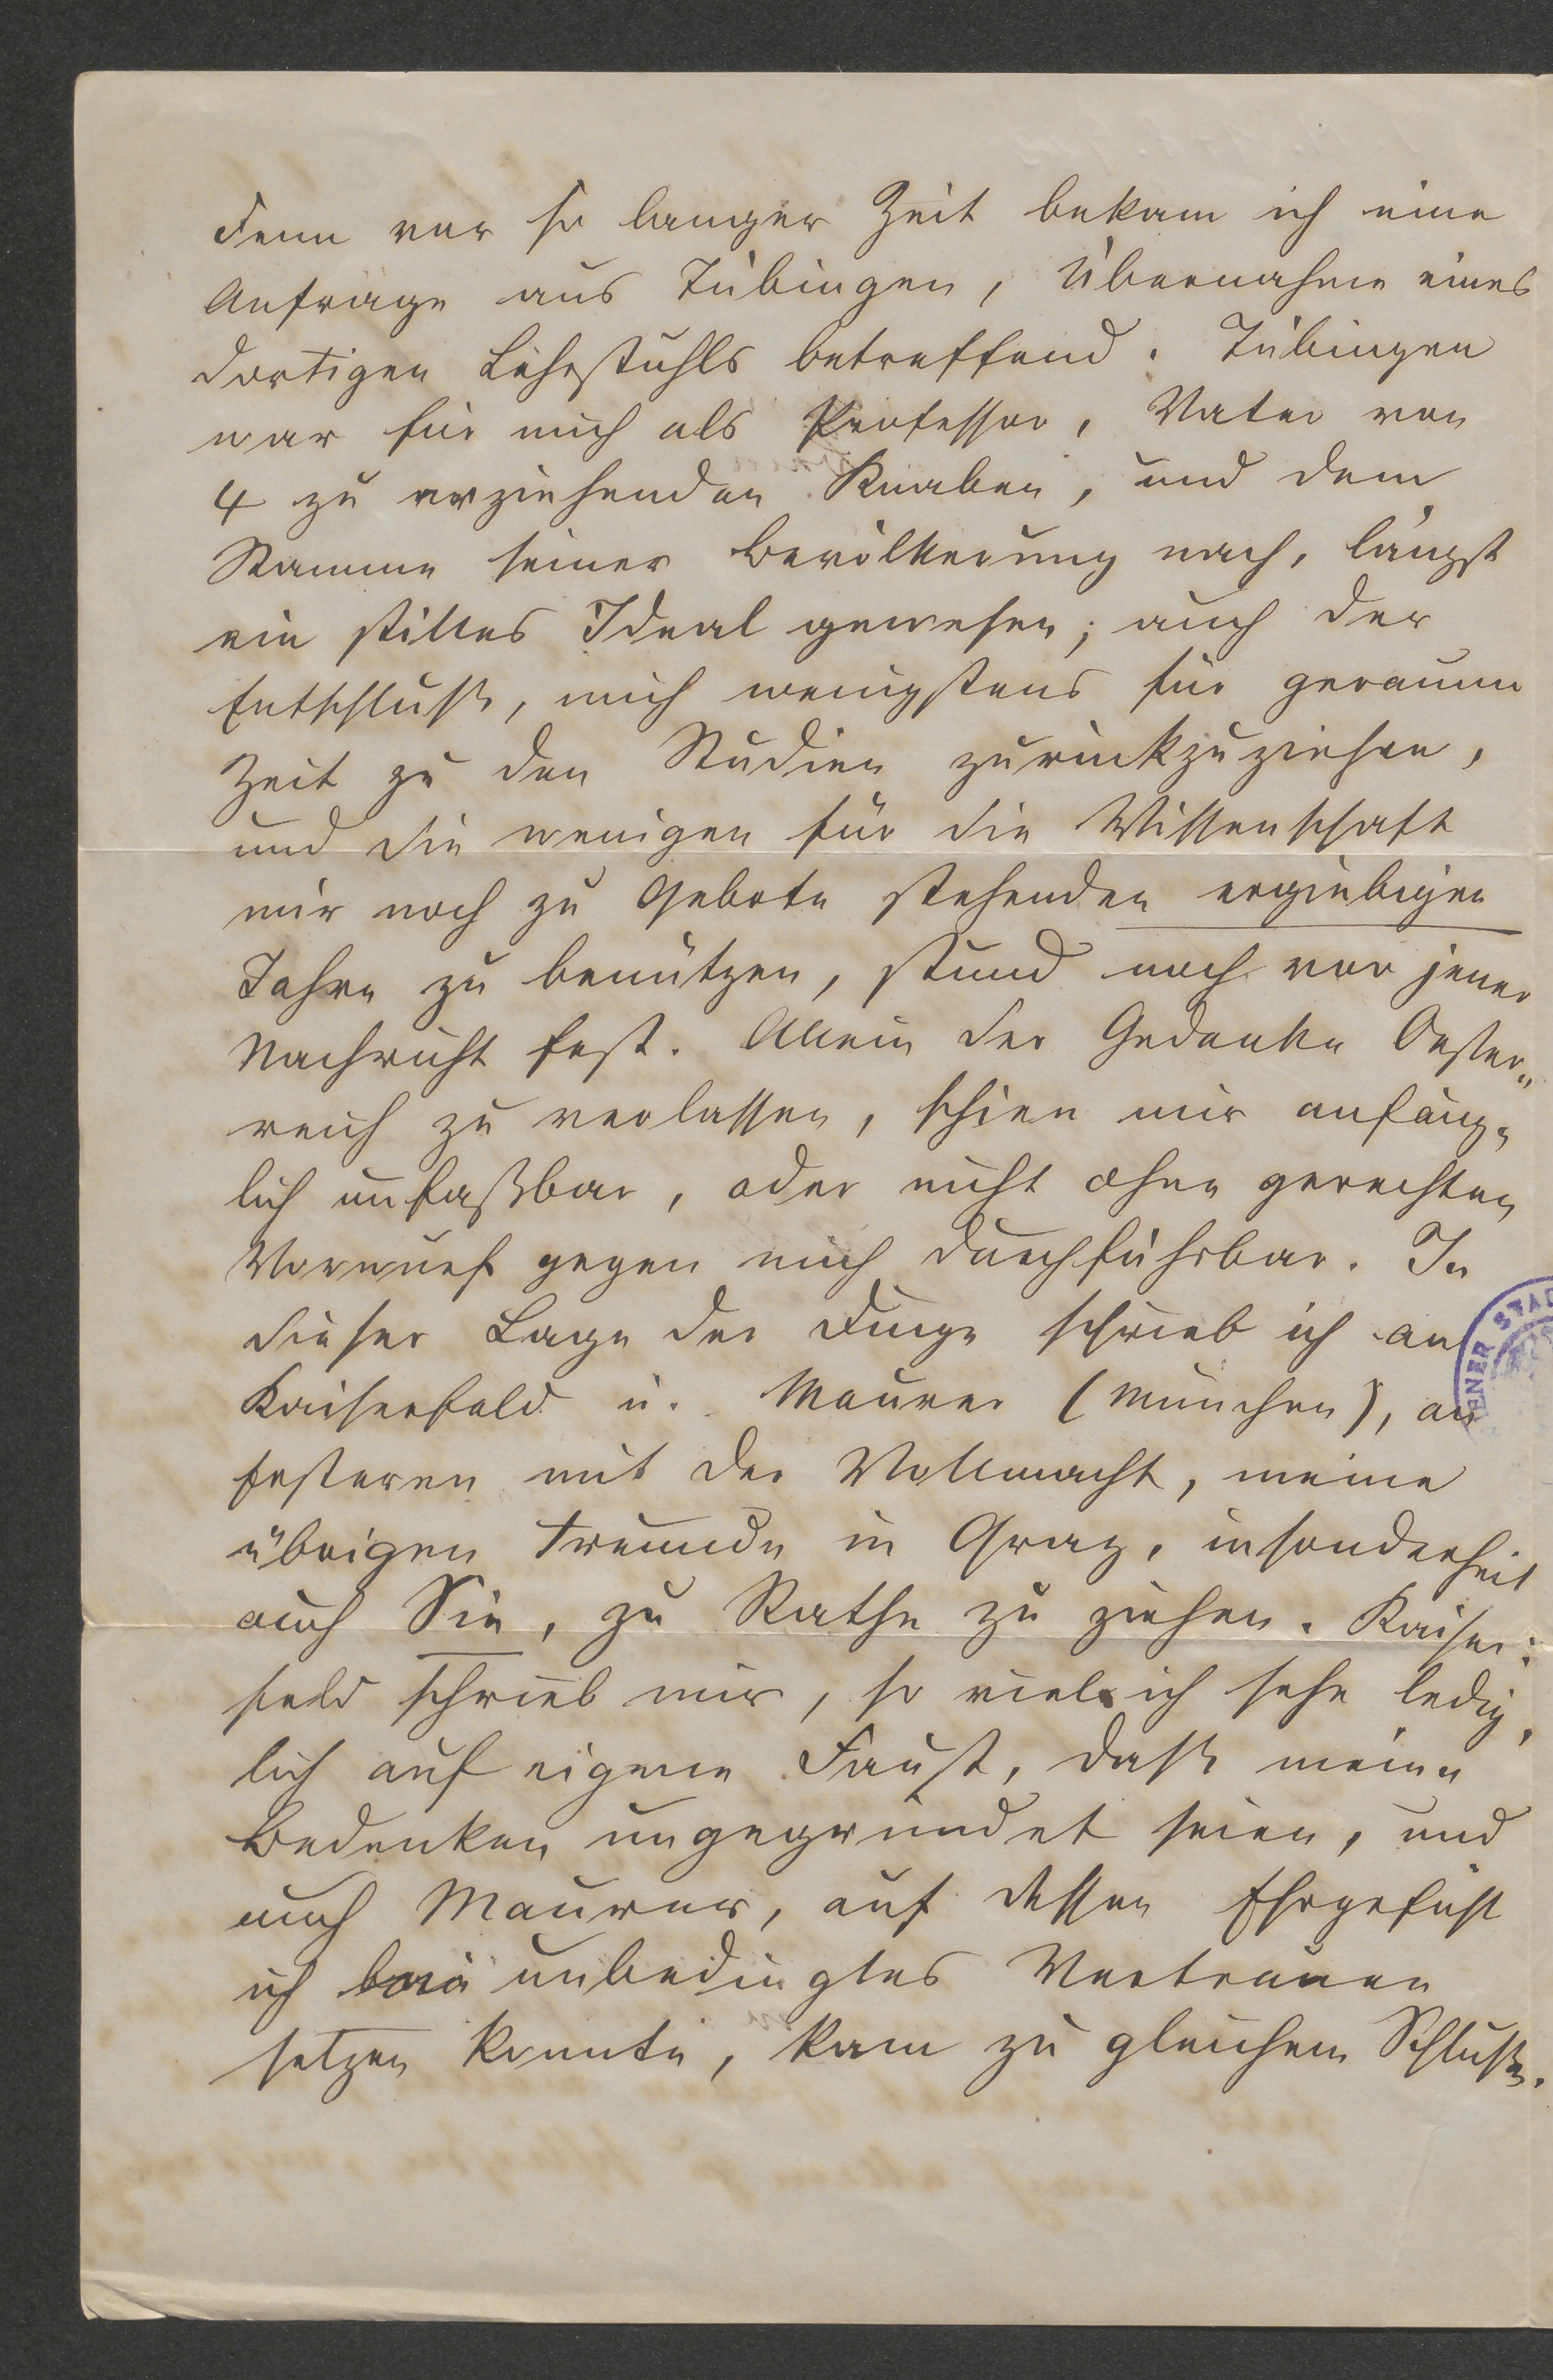 denn vor so langer Zeit bekam ich eine
Anfrage aus Tübingen, Übernahme eines
dortigen Lehrstuhls betreffend. Tübingen
war für mich als Professor, Vater von
4 zu erziehenden Knaben, und dem
Stamme seiner Bevölkerung nach, längst
ein stilles Ideal gewesen; auch der
Entschluß, mich wenigstens für geraume
Zeit zu den Studien zurückzuziehen,
und die wenigen für die Wissenschaft
mir noch zu Gebote stehenden ergiebigen
Jahre zu benützen, stund noch vor jener
Nachricht fest. Allein der Gedanke Oester„
reich zu verlassen, schien mir anfäng„
lich unfaßbar, oder nicht ohne gerechten
Vorwurf gegen mich durchführbar. In
dieser Lage der Dinge schrieb ich an
Kaiserfeld u. Maurer (München), an
ersteren mit der Vollmacht, meine
übrigen Freunde in Graz, insonderheit
auch Sie, zu Rathe zu ziehen. Kaiser:
feld schrieb mir, so viel ich sehe ledig,
lich auf eigene Faust, daß meine
Bedenken ungegründet seien, und
auch Maurer, auf dessen Ehrgefühl
ich unbedingtes Vertrauen
setzen konnte, kam zu gleichem Schluße.
ENER STAD